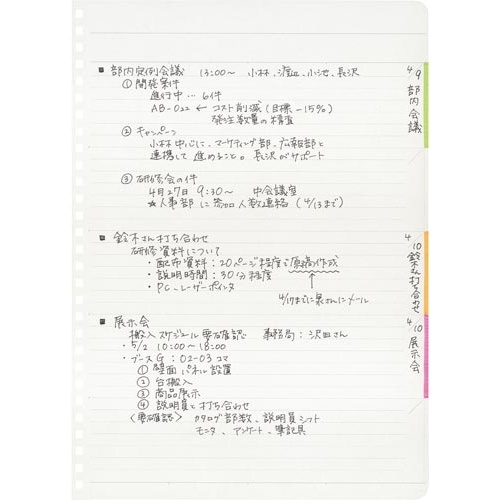 ■ 部内定例会議 13:00〜 小林、渡辺、小池、長沢
① 開発案件
進行中…6件
AB-022 ← コスト削減(目標-15%)
発注数量の精査
② キャンペーン
小林中心に、マーケティング部、広報部と
連携して進めること。長沢がサポート
③ 研修会の件
4月27日 9:30〜 中会議室
★人事部に参加人数連絡(4/13まで)
■ 鈴木さん打ち合わせ
研修資料について
・配布資料:20ページ程度で原稿作成
・説明時間:30分程度
・PC、レーザーポインタ
4/17までに泉さんにメール
■ 展示会
搬入スケジュール要確認 事務局:沢田さん
・5/2 10:00〜18:00
・ブースG:02-03コマ
① 壁面パネル設置
② 台搬入
③ 商品展示
④ 説明員と打ち合わせ
〈要確認〉 カタログ部数、説明員シフト
モニタ、アンケート、筆記具
4/9 部内会議
4/10 鈴木さん打ち合わせ
4/10 展示会